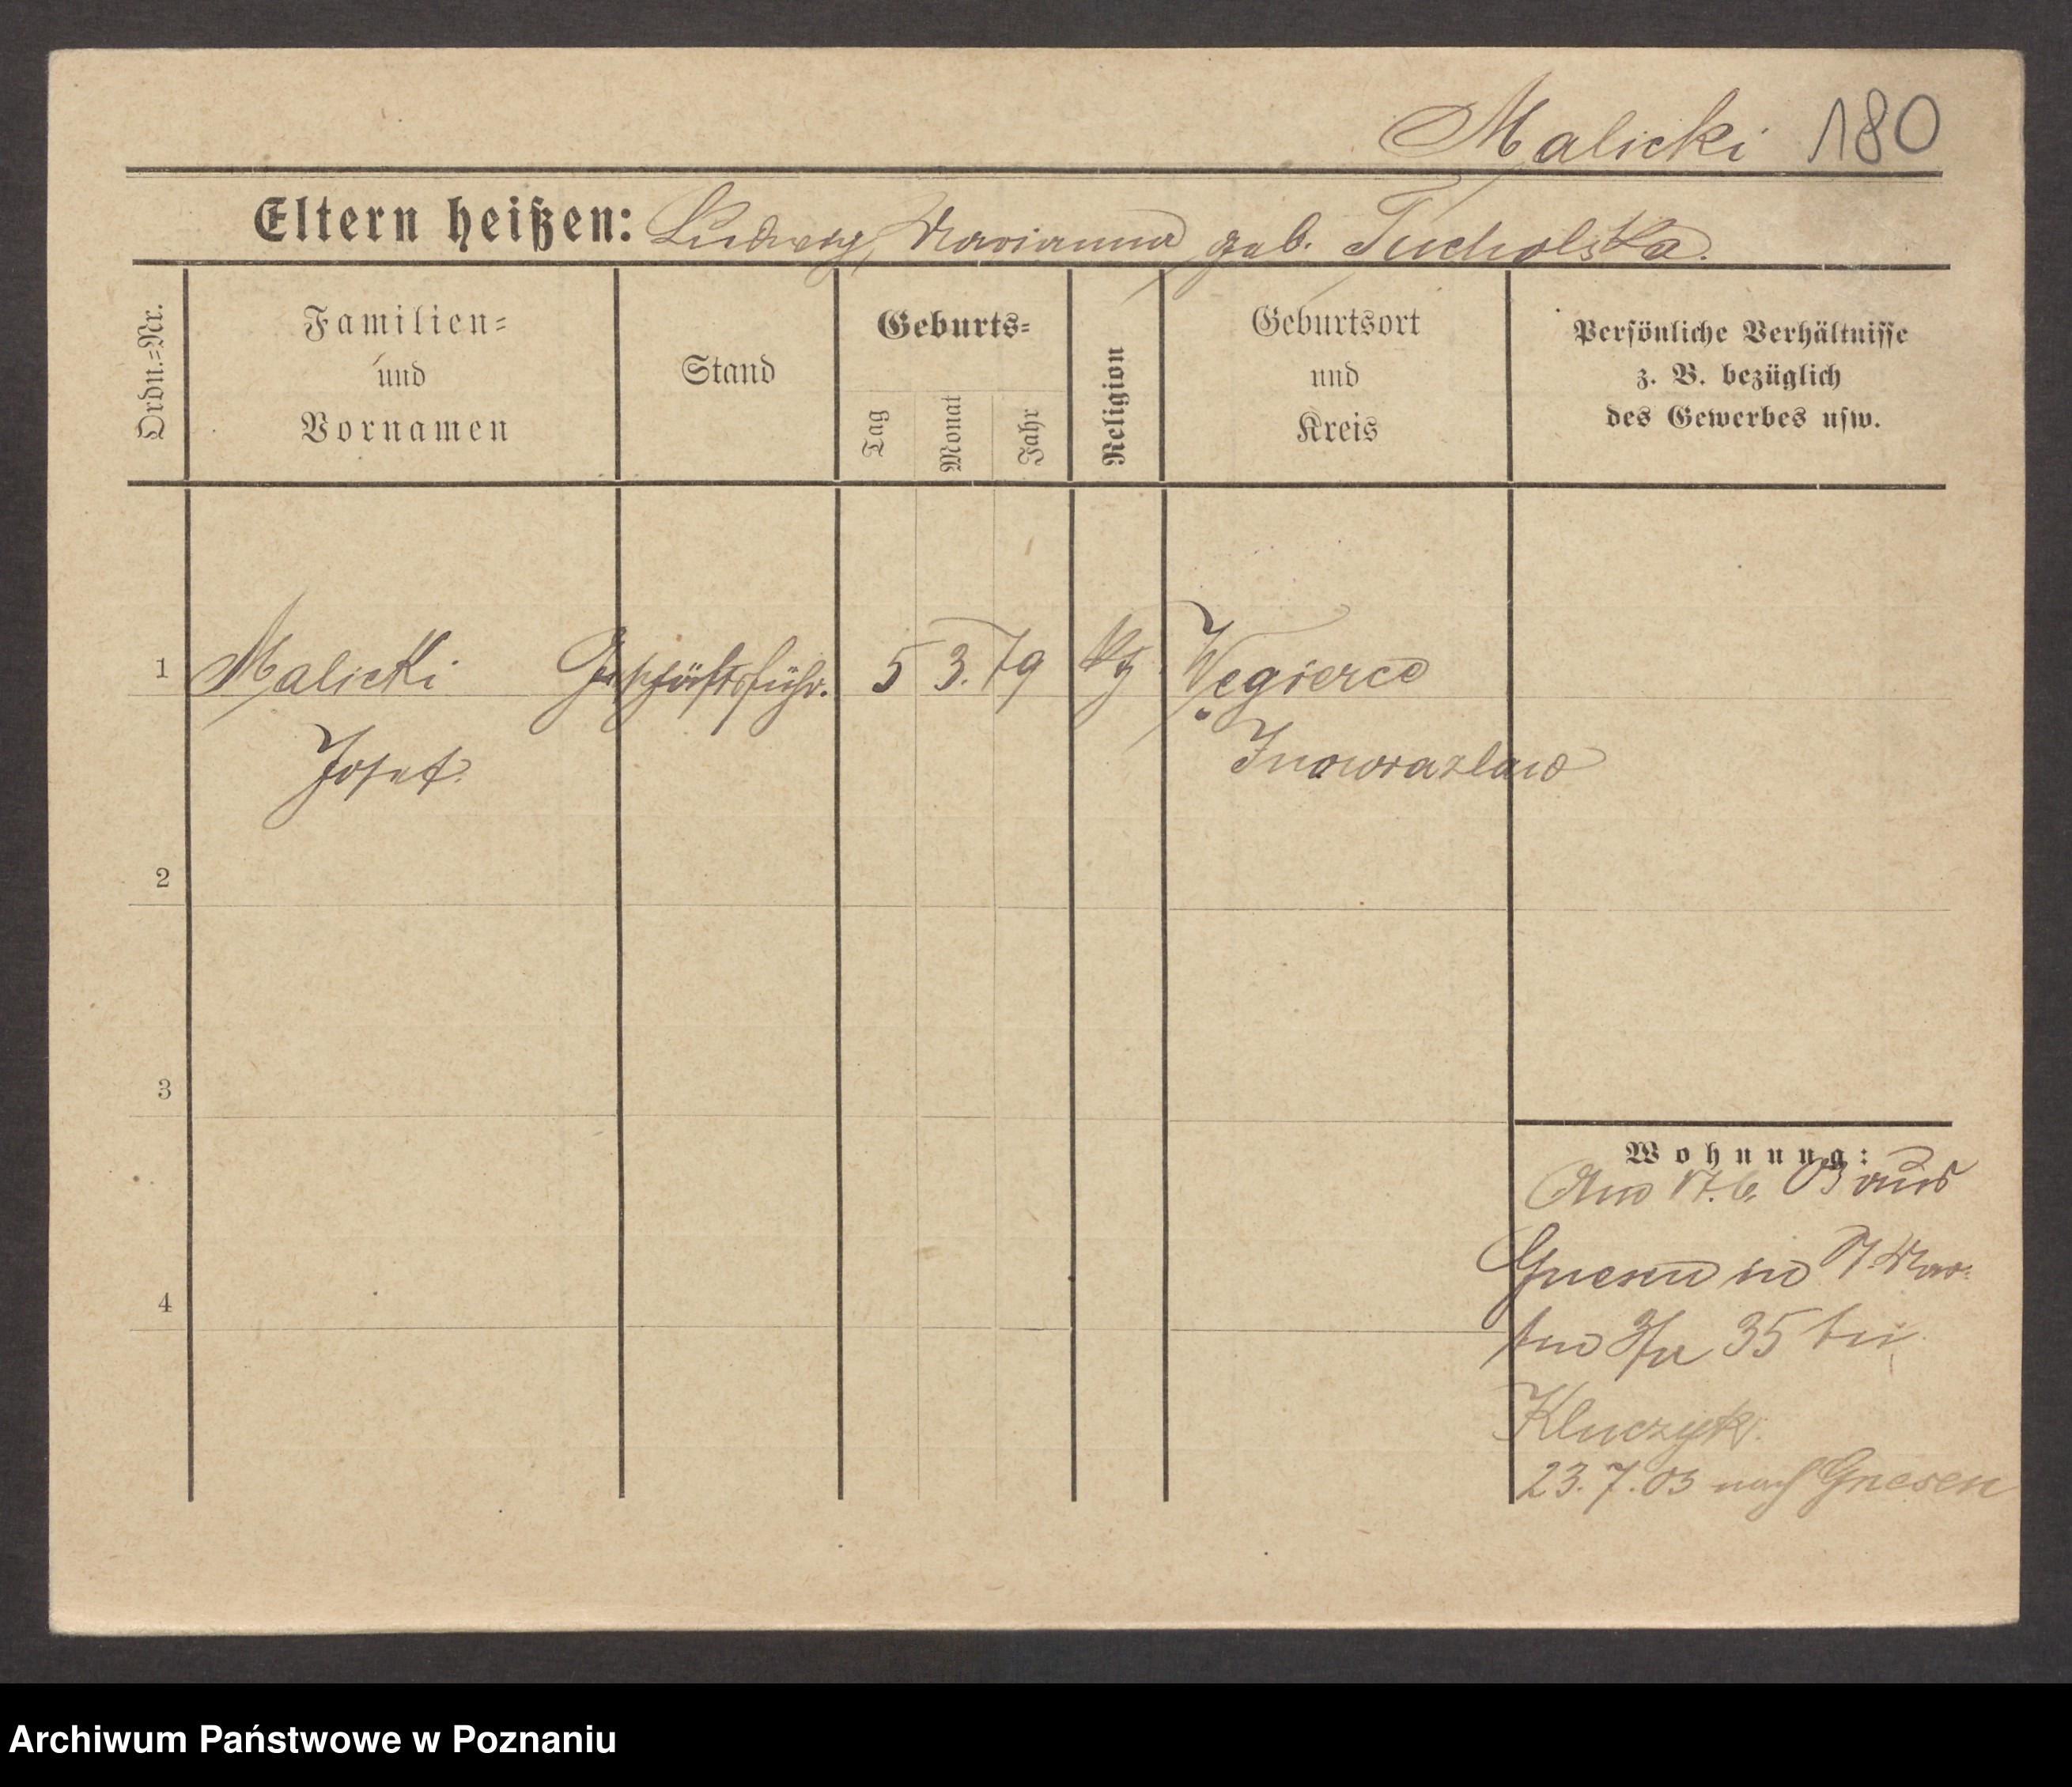 Malicki 180
Eltern heißen: Ludwig, Marianna geb. Tucholska.
Ordn.=Nr.
Familien=
und
Vornamen
Stand
Geburts=
Tag
Monat
Jahr
Religion
Geburtsort
und
Kreis
Persönliche Verhältnisse
z. B. bezüglich
des Gewerbes usw.
1 Malicki Geschäftsführ. 5 3. 79 Wegierce
Josef. Inowrazlaw
2
3
4
Wohnung:
17.6. 03 aus
Gnesen in St Mar=
tin Str 35 bei
Kluczyk.
23.7.03 nach Gnesen
Archiwum Państwowe w Poznaniu